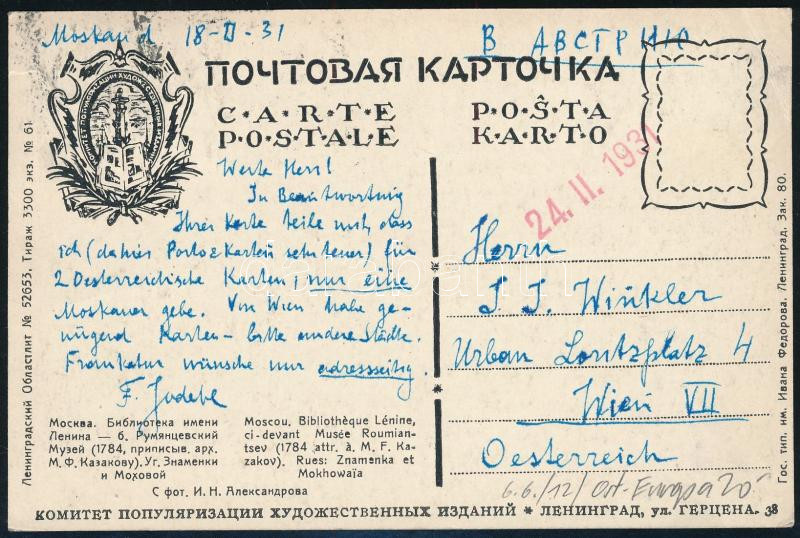 Moskau d 18-II-31
В АВСТРИЮ
ПОЧТОВАЯ КАРТОЧКА
CARTE POSTALE
POŜTA KARTO
24. II. 1931
Werte Herr!
In Beantwortung
Ihrer Karte teile mit, dass
ich (da hier Porto & Karten sehr teuer) für
2 Oesterreichische Karten, nur eine
Moskauer gebe. Von Wien habe ge-
nügend Karten - bitte andere Städte.
Frankatur wünsche nur adressseitig.
Herrn
J. J. Winkler
Urban Loritzplatz 4
Wien VII
Oesterreich
Москва. Библиотека имени
Ленина — б. Румянцевский
Музей (1784, приписыв. арх.
М. Ф. Казакову). Уг. Знаменки
и Моховой
Moscou. Bibliothèque Lénine,
ci-devant Musée Roumian-
tsev (1784 attr. à M. F. Ka-
zakov). Rues: Znamenka et
Mokhowaïa
С фот. И. Н. Александрова
6.6./12/ Ort-Europa 20
КОМИТЕТ ПОПУЛЯРИЗАЦИИ ХУДОЖЕСТВЕННЫХ ИЗДАНИЙ * ЛЕНИНГРАД, ул. ГЕРЦЕНА. 38
Ленинградский Областлит № 52653. Тираж 3300 экз. № 61
Гос. тип. им. Ивана Федорова. Ленинград. Зак. 80.